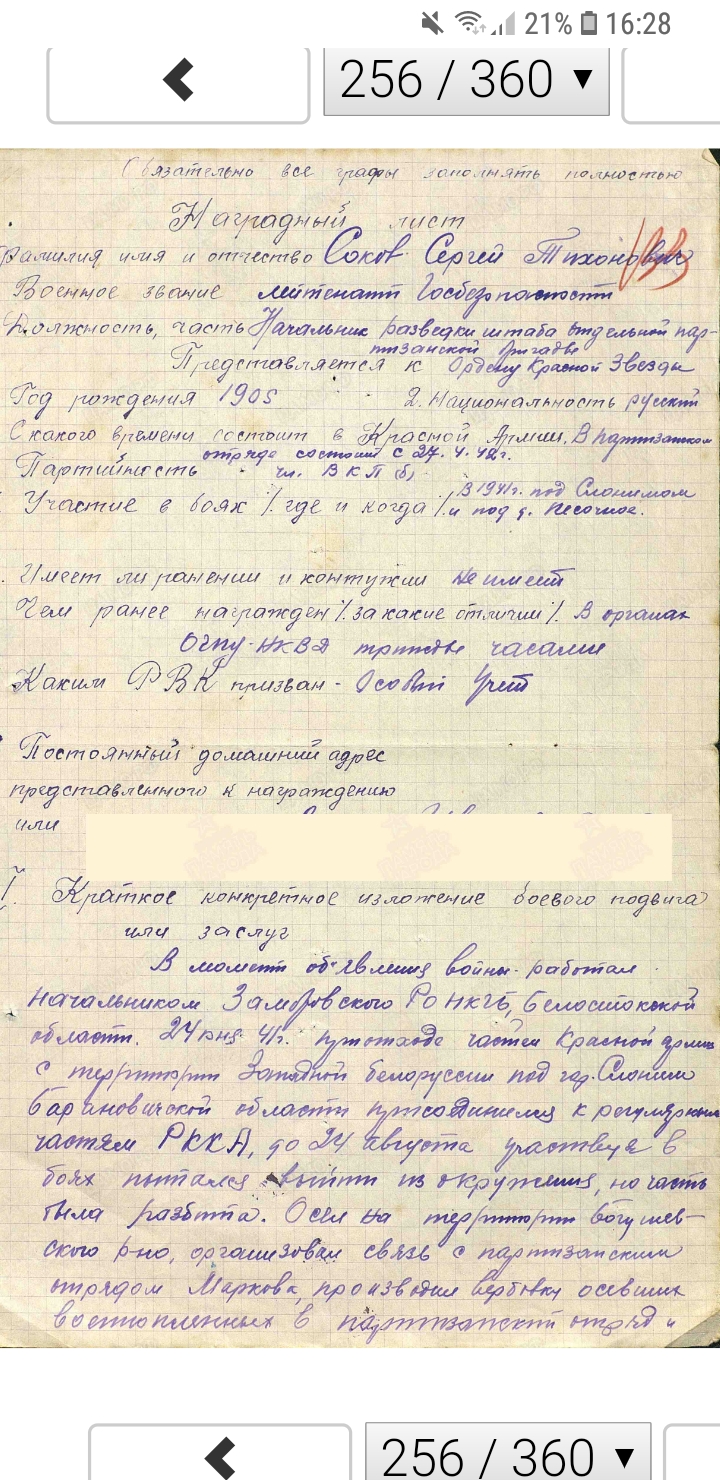 21% 16:28
256 / 360 ▼
Обязательно все графы заполнять полностью
Наградный лист
Фамилия имя и отчество Соков Сергей Тихонович
Военное звание лейтенант Госбезопасности
Должность, часть Начальник разведки штаба отдельной пар-
тизанской бригады
Представляется к Ордену Красной Звезды
Год рождения 1905 2. Национальность русский
С какого времени состоит в Красной Армии. В партизанском
отряде состоит с 27.4.42г.
Партийность чл. ВКП(б)
Участие в боях /. где и когда /. В 1941г. под Слонимом
и под д. Песочное.
Имеет ли ранении и контузии не имеет
Чем ранее награжден /. за какие отличии /. В органах
ОГПУ-НКВД трижды часами
Каким РВК призван - Особый Учет
Постоянный домашний адрес
представленного к награждению
или
I. Краткое конкретное изложение боевого подвига
или заслуг
В момент об'явления войны работал
начальником Замбровского РО НКГБ, Белостокской
области. 24 июня 41г. при отходе частей Красной армии
с территории Западной белоруссии под гор. Слоним
Барановичской области присоединился к регулярным
частям РККА, до 24 августа участвуя в
боях пытался выйти из окружения, но часть
была разбита. Осел на территории Богушев-
ского р-на, организовал связь с партизанским
отрядом Маркова, производил вербовку осевших
военнопленных в партизанский отряд и
256 / 360 ▼